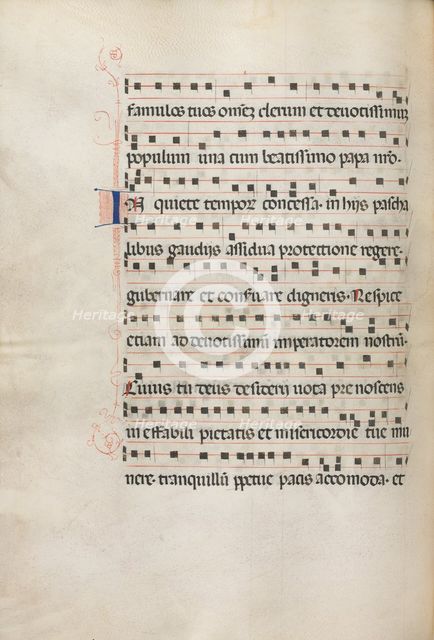 famulos tuos omẽꝫ clerum et deuotissimuꝫ
populum una cum beatissimo papa nr̃o.
A quiete tempoꝝ concessa. in hijs pascha
libus gaudijs assidua protectione regere.
gubernare et conſuare digneris. Respice
etiam ad deuotissimũ imperatorem nostrũ.
Cuius tu deus desiderij uota pre noscens
in effabili pietatis et misericordie tue mu
nere. tranquillũ ꝑpetue pacis accomoda. et
Heritage Heritage
Heritage Heritage
Heritage Heritage
Heritage Heritage